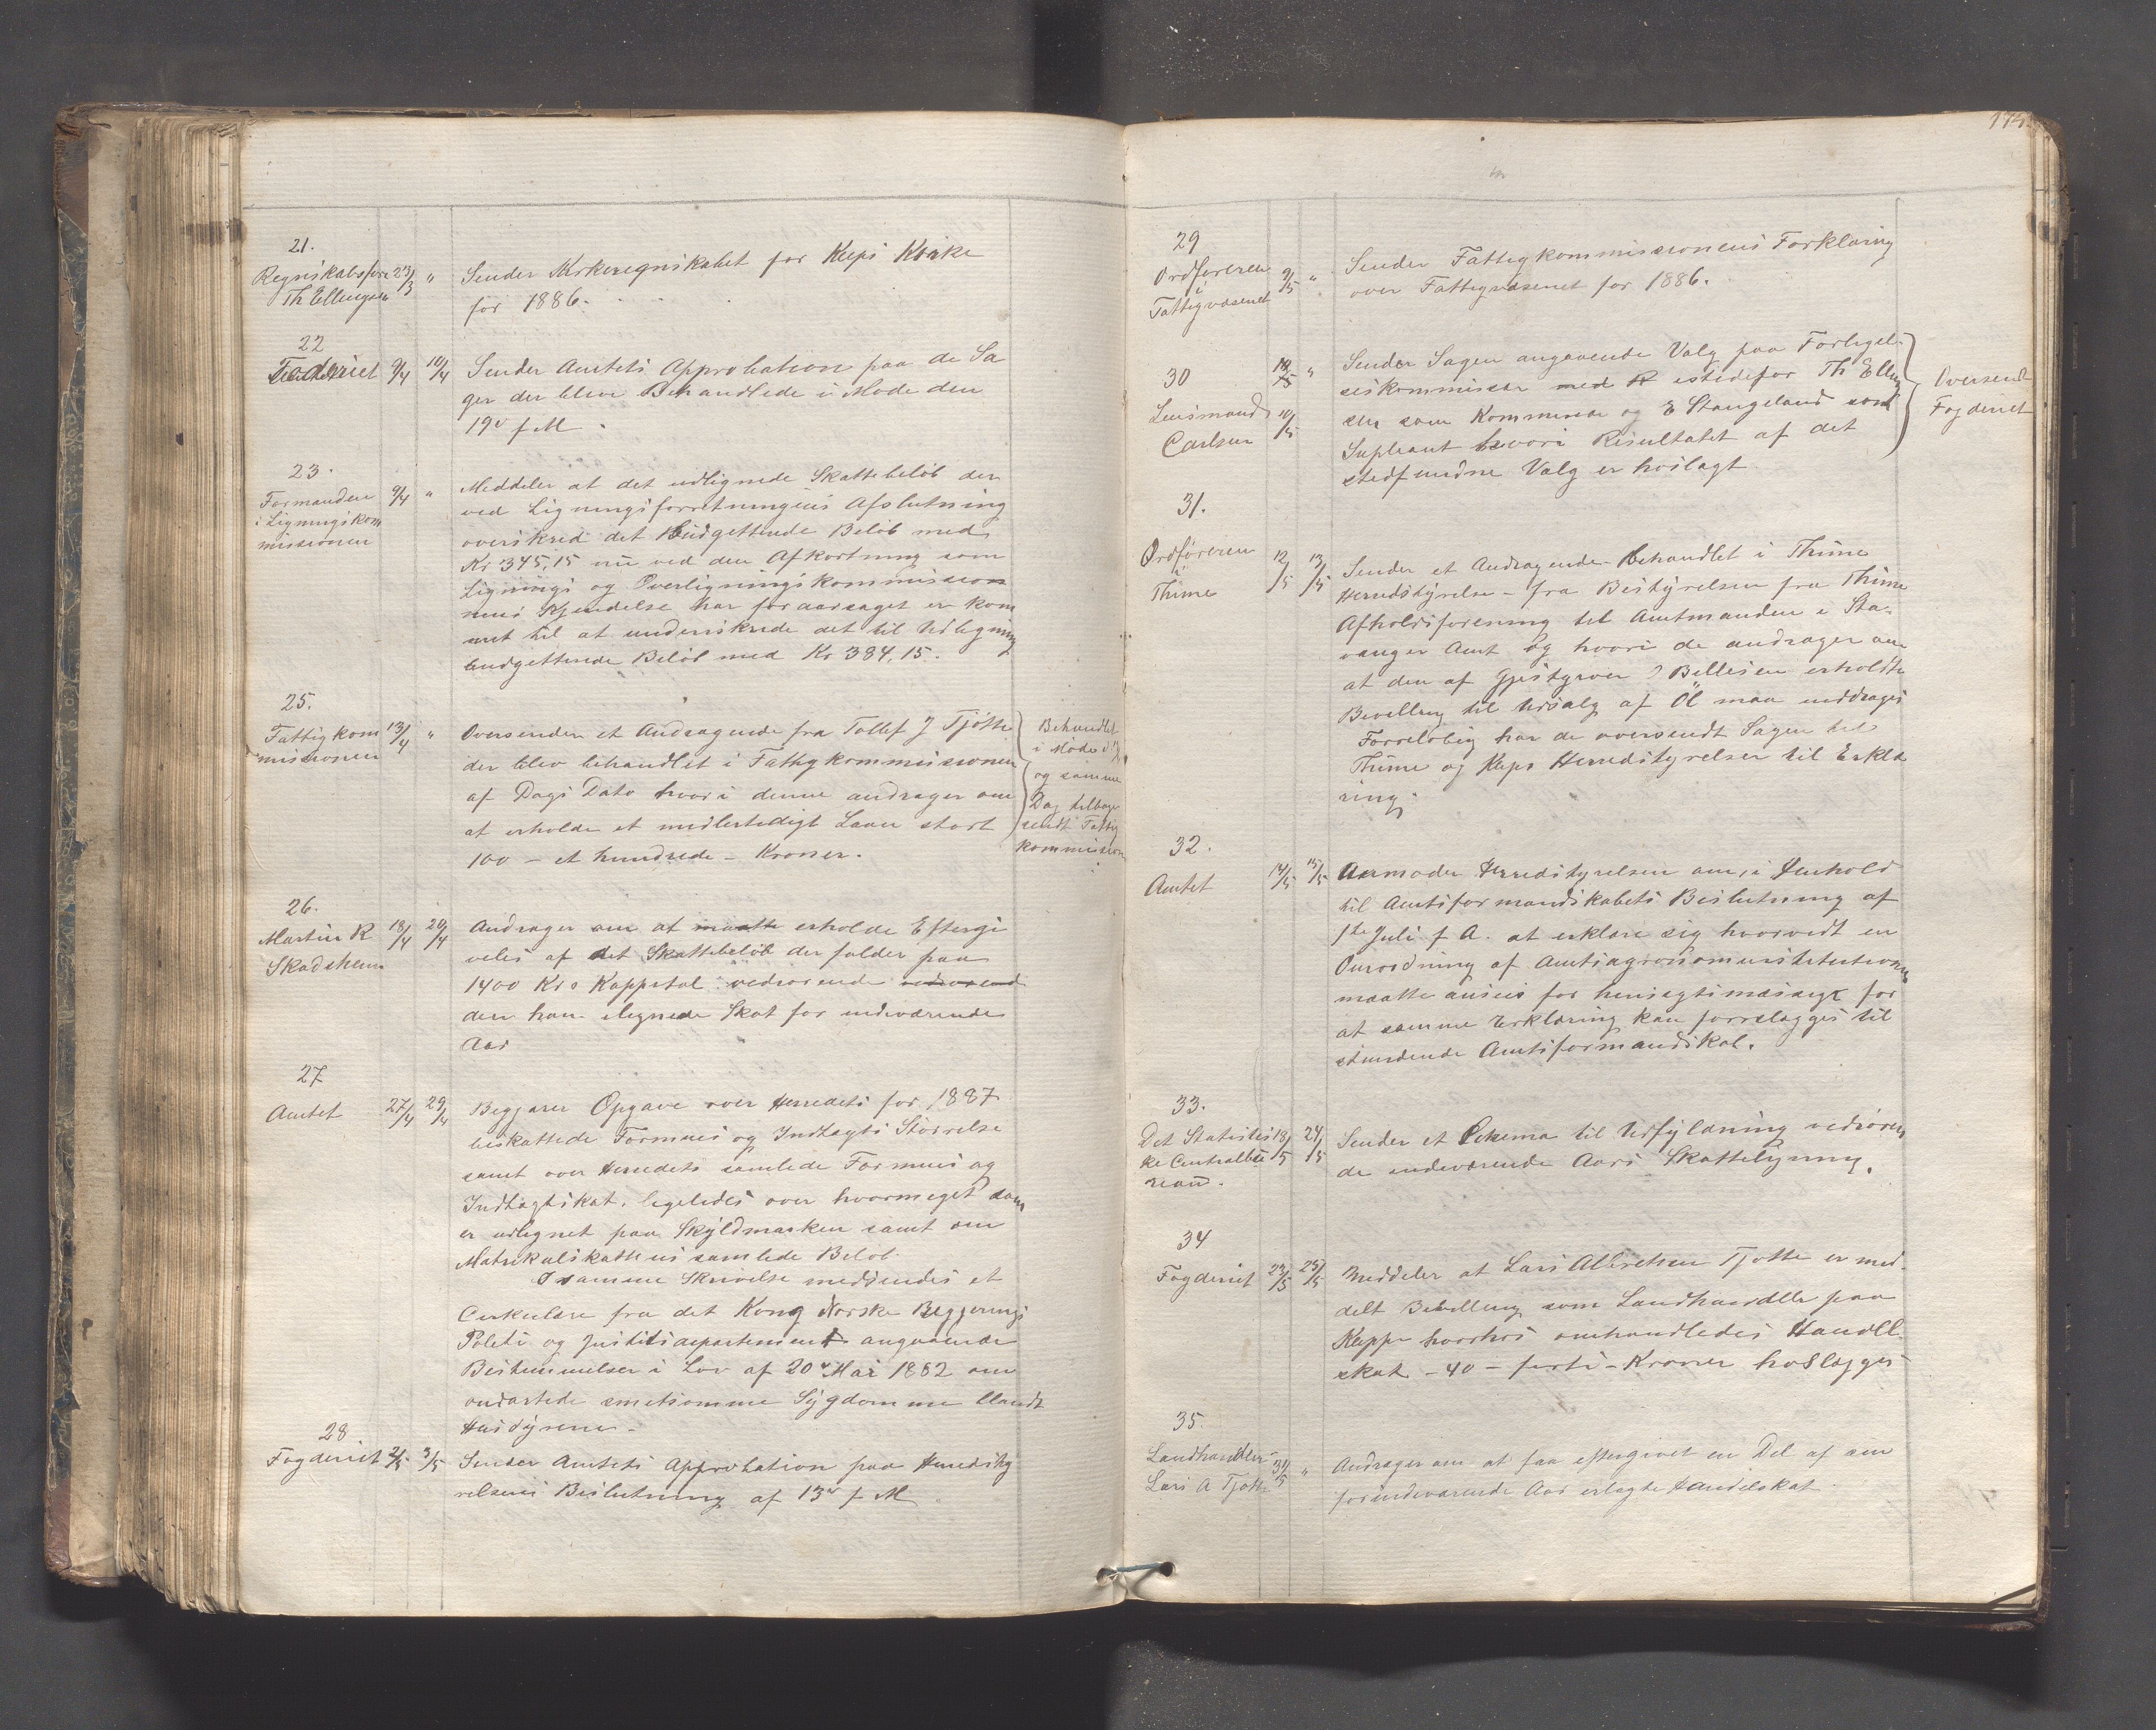 21.
Regnskabsfører 23/3 " Sender Kirkeregnskabet for Kleps Kirke
Th Ellingsen for 1886.
22
Fogderiet 9/4 10/4 Sender Amtets Approbation paa de Sa
ger der bleve Behandlede i Møde den
19de f M.
23.
Formanden 9/4 " Meddeler at det udlignede Skattebeløb der
i Ligningskom ved Ligningsforretningens Afslutning
missionen overskred det Budgetterede Beløb med
Kr 345,15 nu ved den Afkortning som
Lignings og Overligningskommission
nens Kjendelse har foraarsaget er kom
met til at underskride det til Udligning
budgetterede Beløb med Kr 384,15.
25.
Fattigkom 13/4 " Oversender et Andragende fra Tollef J Tjøtta
missionen der blev behandlet i Fattigkommissionen
af Dags Dato hvori denne andrager om
at erholde et midlertidigt Laan stort
100 – et hundrede – Kroner.
Behandlet
i Møde d.
og samme
Dag tilbage
sendt Fattig
kommission
26.
Martin R 18/4 20/4 Andrager om at maatte erholde Eftergi
Skadsheim velse af det Skattebeløb der falder paa
1400 Kr s Kappetal vedrørende vedrørende
den ham ilignede Skat for indeværende
Aar
27
Amtet 27/4 29/4 Begjærer Opgave over Herredets for 1887
beskattede Formues og Indtægts Størrelse
samt over Herredets samlede Formues og
Indtægtskat, ligeledes over hvormeget som
er udlignet paa Skyldmarken samt om
Matrikulskattens samlede Beløb.
I samme Skrivelse meddeles et
Cirkulære fra det Kong Norske Regjerings
Politi og Justitsdepartement angaaende
Bestemmelser i Lov af 20de Mai 1882 om
ondartede smetsomme Sygdomme blandt
Husdyrene.
28
Fogderiet 2/5 3/5 Sender Amtets Approbation paa Herredsty
relsens Beslutning af 13de f M.
175
29
Ordføreren 9/5 " Sender Fattigkommissionens Forklaring
i over Fattigvæsenet for 1886.
Fattigvæsenet
30
Lensmand 10/5 " Sender Sagen angaaende Valg paa Forligel-
Carlsen 10/5 seskommissær med R istedefor Th Elling
sen som Kommissær og E Stangeland som
Supleant hvori Resultatet af det
stedfundne Valg er hoslagt
Oversendt
Fogderiet
31.
Ordføreren 12/5 13/5 Sender et Andragende – behandlet i Thime
i Herredstyrelse – fra Bestyrelsen fra Thime
Thime Afholdsforening til Amtmanden i Sta-
vanger Amt og hvori de andrager om
at den af Gjestgiver J Bellesen erholdte
Bevilling til Udsalg af Öl maa inddrages
Foreløbig har de oversendt Sagen til
Thime og Kleps Herredstyrelser til Erklæ
ring.
32.
Amtet 14/5 15/5 Anmoder Herredstyrelsen om, i Henhold
til Amtsformandskabets Beslutning af
1ste Juli f A. at erklære sig hvorvidt en
Omordning af Amtsagronominstitutionen
maatte ansees for hensigtsmæssige for
at samme Erklæring kan forrelægges til
stundende Amtsformandskab.
33.
Det Statistis 18/5 24/5 Sender et Schema til Udfyldning vedrøren
ke Centralbu de indeværende Aars Skatteligning.
reau.
34
Fogderiet 24/5 25/5 Meddeler at Lars Albretsen Tjøtta er med-
delt Bevilling som Landhandler paa
Kleppe hvorhos omhandledes Handel
skat – 40 – førti – Kroner hoslægges
35.
Landhandler 31/5 " Andrager om at faa eftergivet en Del af sin
Lars A Tjøtta for indeværende Aar erlagte Handelskat.